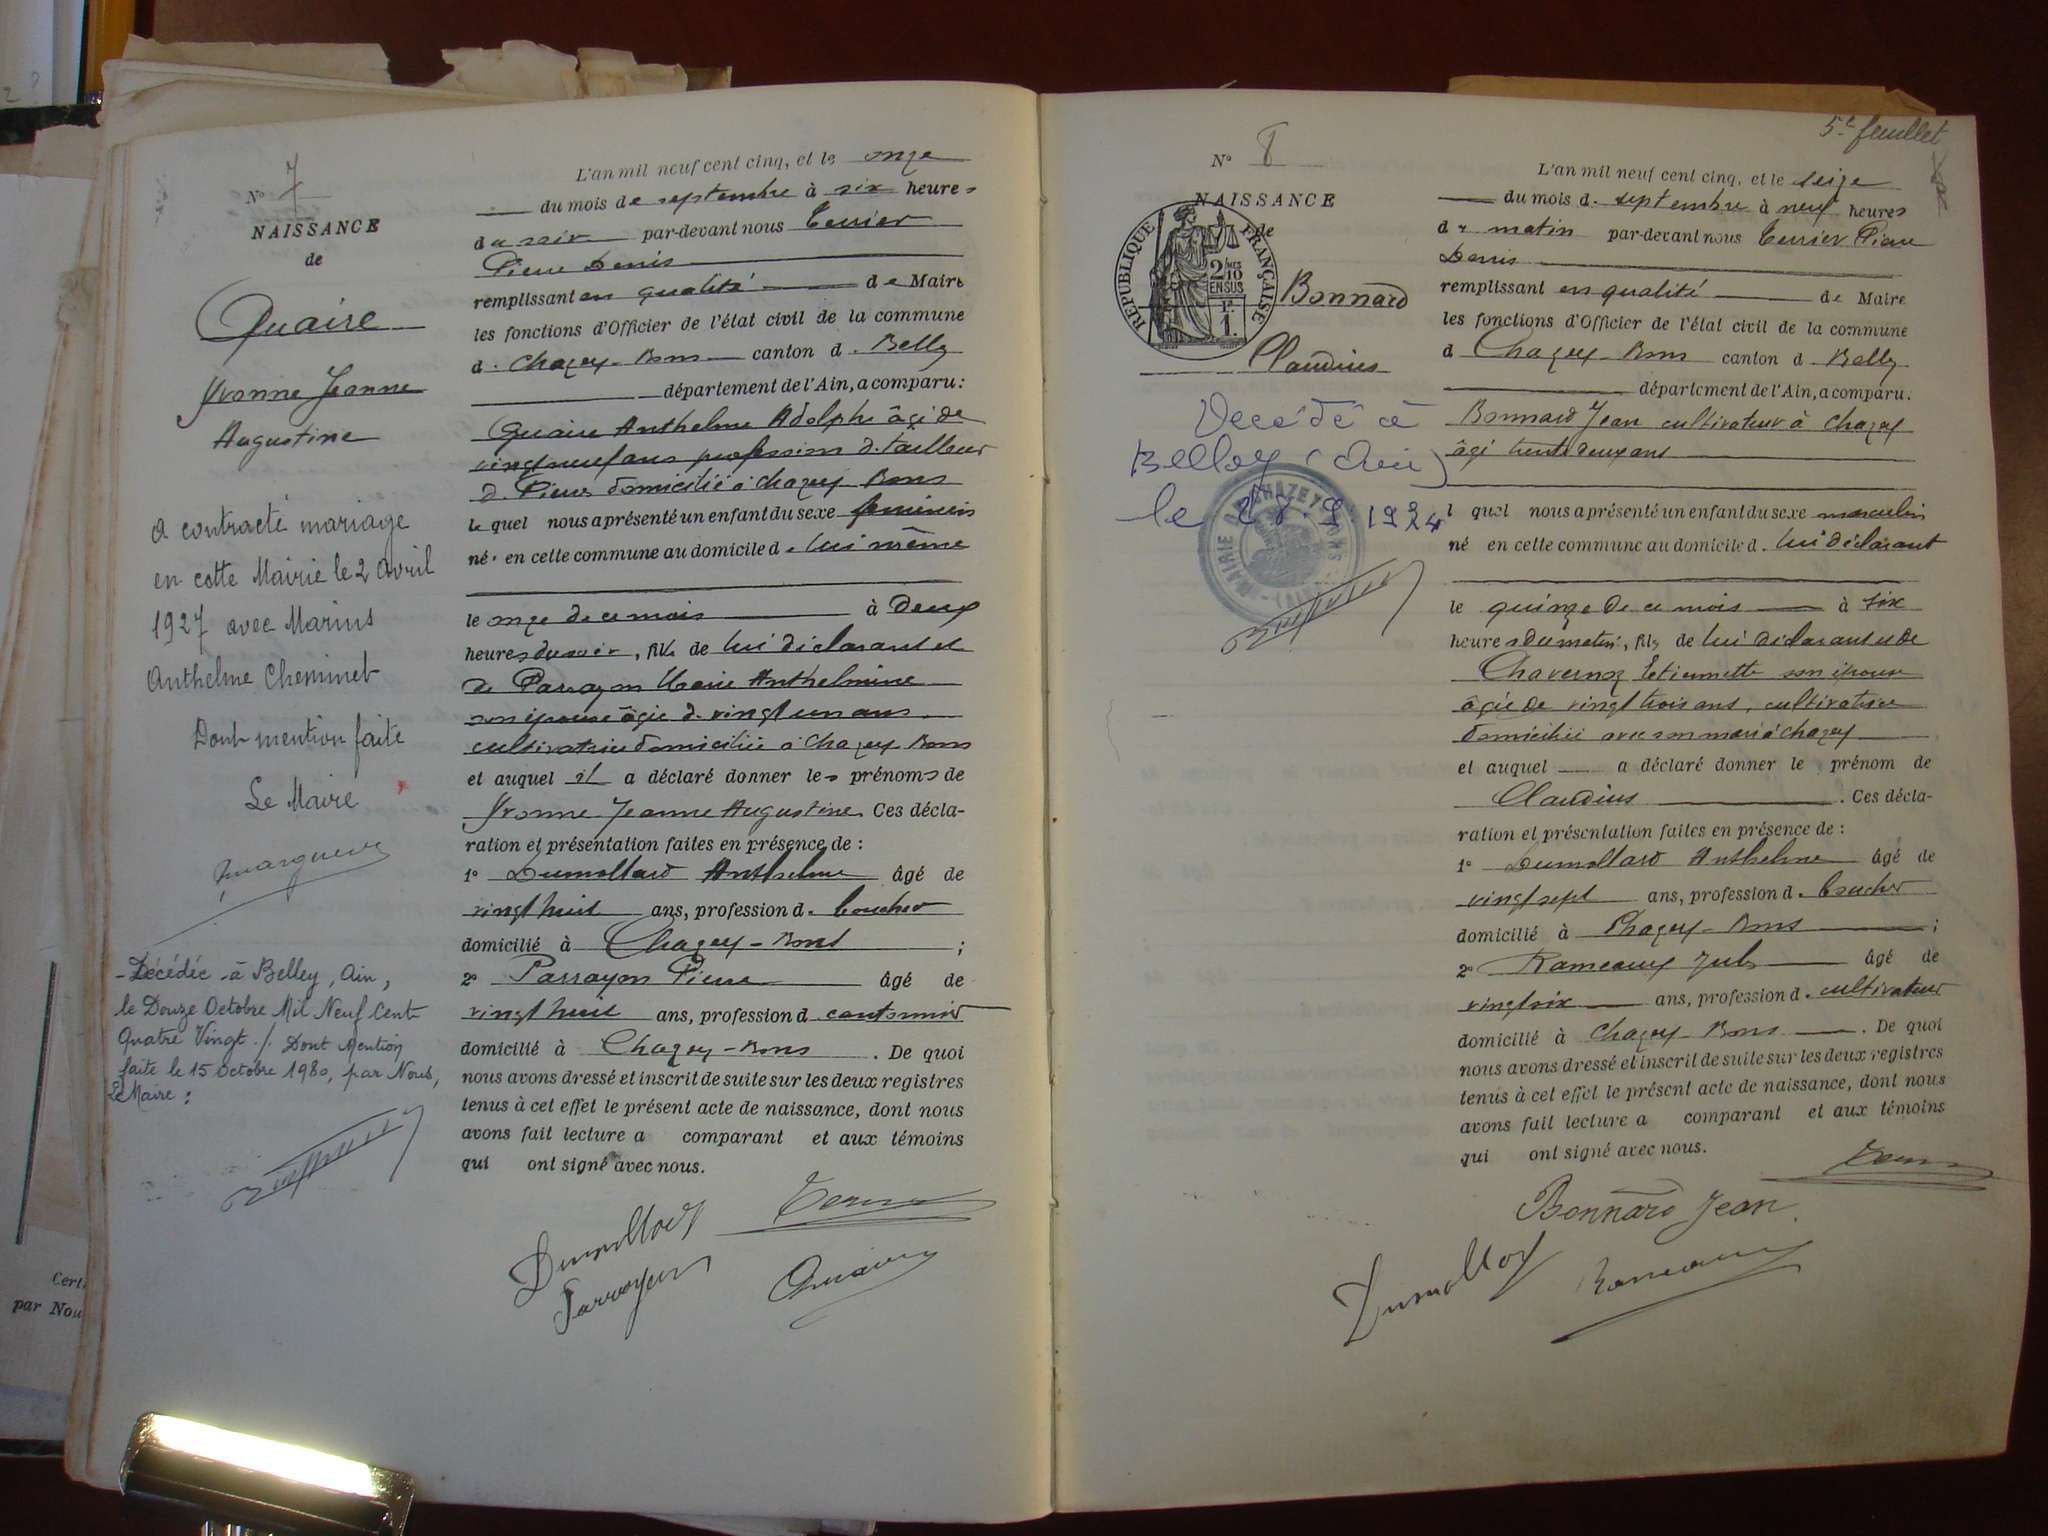 N° 7
NAISSANCE
de
Quaire
Yvonne Jeanne
Augustine
a contracté mariage
en cette Mairie le 2 avril
1927 avec Marius
Anthelme Cheminet
Dont mention faite
Le Maire
Décédée à Belley, Ain,
le Douze Octobre Mil Neuf Cent
Quatre Vingt ./. Dont Mention
faite le 15 Octobre 1980, par Nous,
Le Maire :
L'an mil neuf cent cinq, et le onze
du mois de septembre à six heures
du soir par-devant nous Terrier
Pierre Denis
remplissant en qualité de Maire
les fonctions d'Officier de l'état civil de la commune
d. Chazey-Bons canton d. Belley
département de l'Ain, a comparu :
Quaire Anthelme Adolphe âgé de
vingt neuf ans profession d. tailleur
d. Pierres domicilié à Chazey Bons
le quel nous a présenté un enfant du sexe féminin
né. en cette commune au domicile d. lui même
le onze de ce mois à deux
heures du soir, fille de lui déclarant et
de Parrayon Marie Anthelmine
son épouse âgée d. vingt un ans
cultivatrice domiciliée à Chazey Bons
et auquel il a déclaré donner les prénoms de
Yvonne Jeanne Augustine. Ces décla-
ration et présentation faites en présence de :
1° Dumollard Anthelme âgé de
vingt huit ans, profession d. boucher
domicilié à Chazey-Bons ;
2° Parrayon Pierre âgé de
vingt huit ans, profession d cantonnier
domicilié à Chazey-Bons . De quoi
nous avons dressé et inscrit de suite sur les deux registres
tenus à cet effet le présent acte de naissance, dont nous
avons fait lecture a comparant et aux témoins
qui ont signé avec nous.
Dumollard
Parrayon
Quaire
5e feuillet
N° 8
NAISSANCE
de
RÉPUBLIQUE FRANÇAISE
2/10 MES
EN SUS
1F
1.
Bonnard
Claudius
Décédé à
Belley (Ain)
MAIRIE CHAZEY BONS
L'an mil neuf cent cinq, et le seize
du mois d. septembre à neuf heures
du matin par-devant nous Terrier Pierre
Denis
remplissant en qualité de Maire
les fonctions d'Officier de l'état civil de la commune
d Chazey-Bons canton d. Belley
département de l'Ain, a comparu.
Bonnard Jean cultivateur à Chazey
âgé trente deux ans
l quel nous a présenté un enfant du sexe masculin
né en cette commune au domicile d. lui déclarant
le quinze de ce mois à six
heures du matin, fils de lui déclarant et de
Chavernoz Etiennette son épouse
âgée de vingt trois ans, cultivatrice
domiciliée avec son mari à Chazey
et auquel a déclaré donner le prénom de
Claudius . Ces décla-
ration et présentation faites en présence de :
1° Dumollard Anthelme âgé de
vingt sept ans, profession d. boucher
domicilié à Chazey-Bons ;
2° Rameaux Jules âgé de
vingt six ans, profession d. cultivateur
domicilié à Chazey-Bons . De quoi
nous avons dressé et inscrit de suite sur les deux registres
tenus à cet effet le présent acte de naissance, dont nous
avons fait lecture a comparant et aux témoins
qui ont signé avec nous.
Bonnard Jean
Dumollard
Rameaux
par Nou